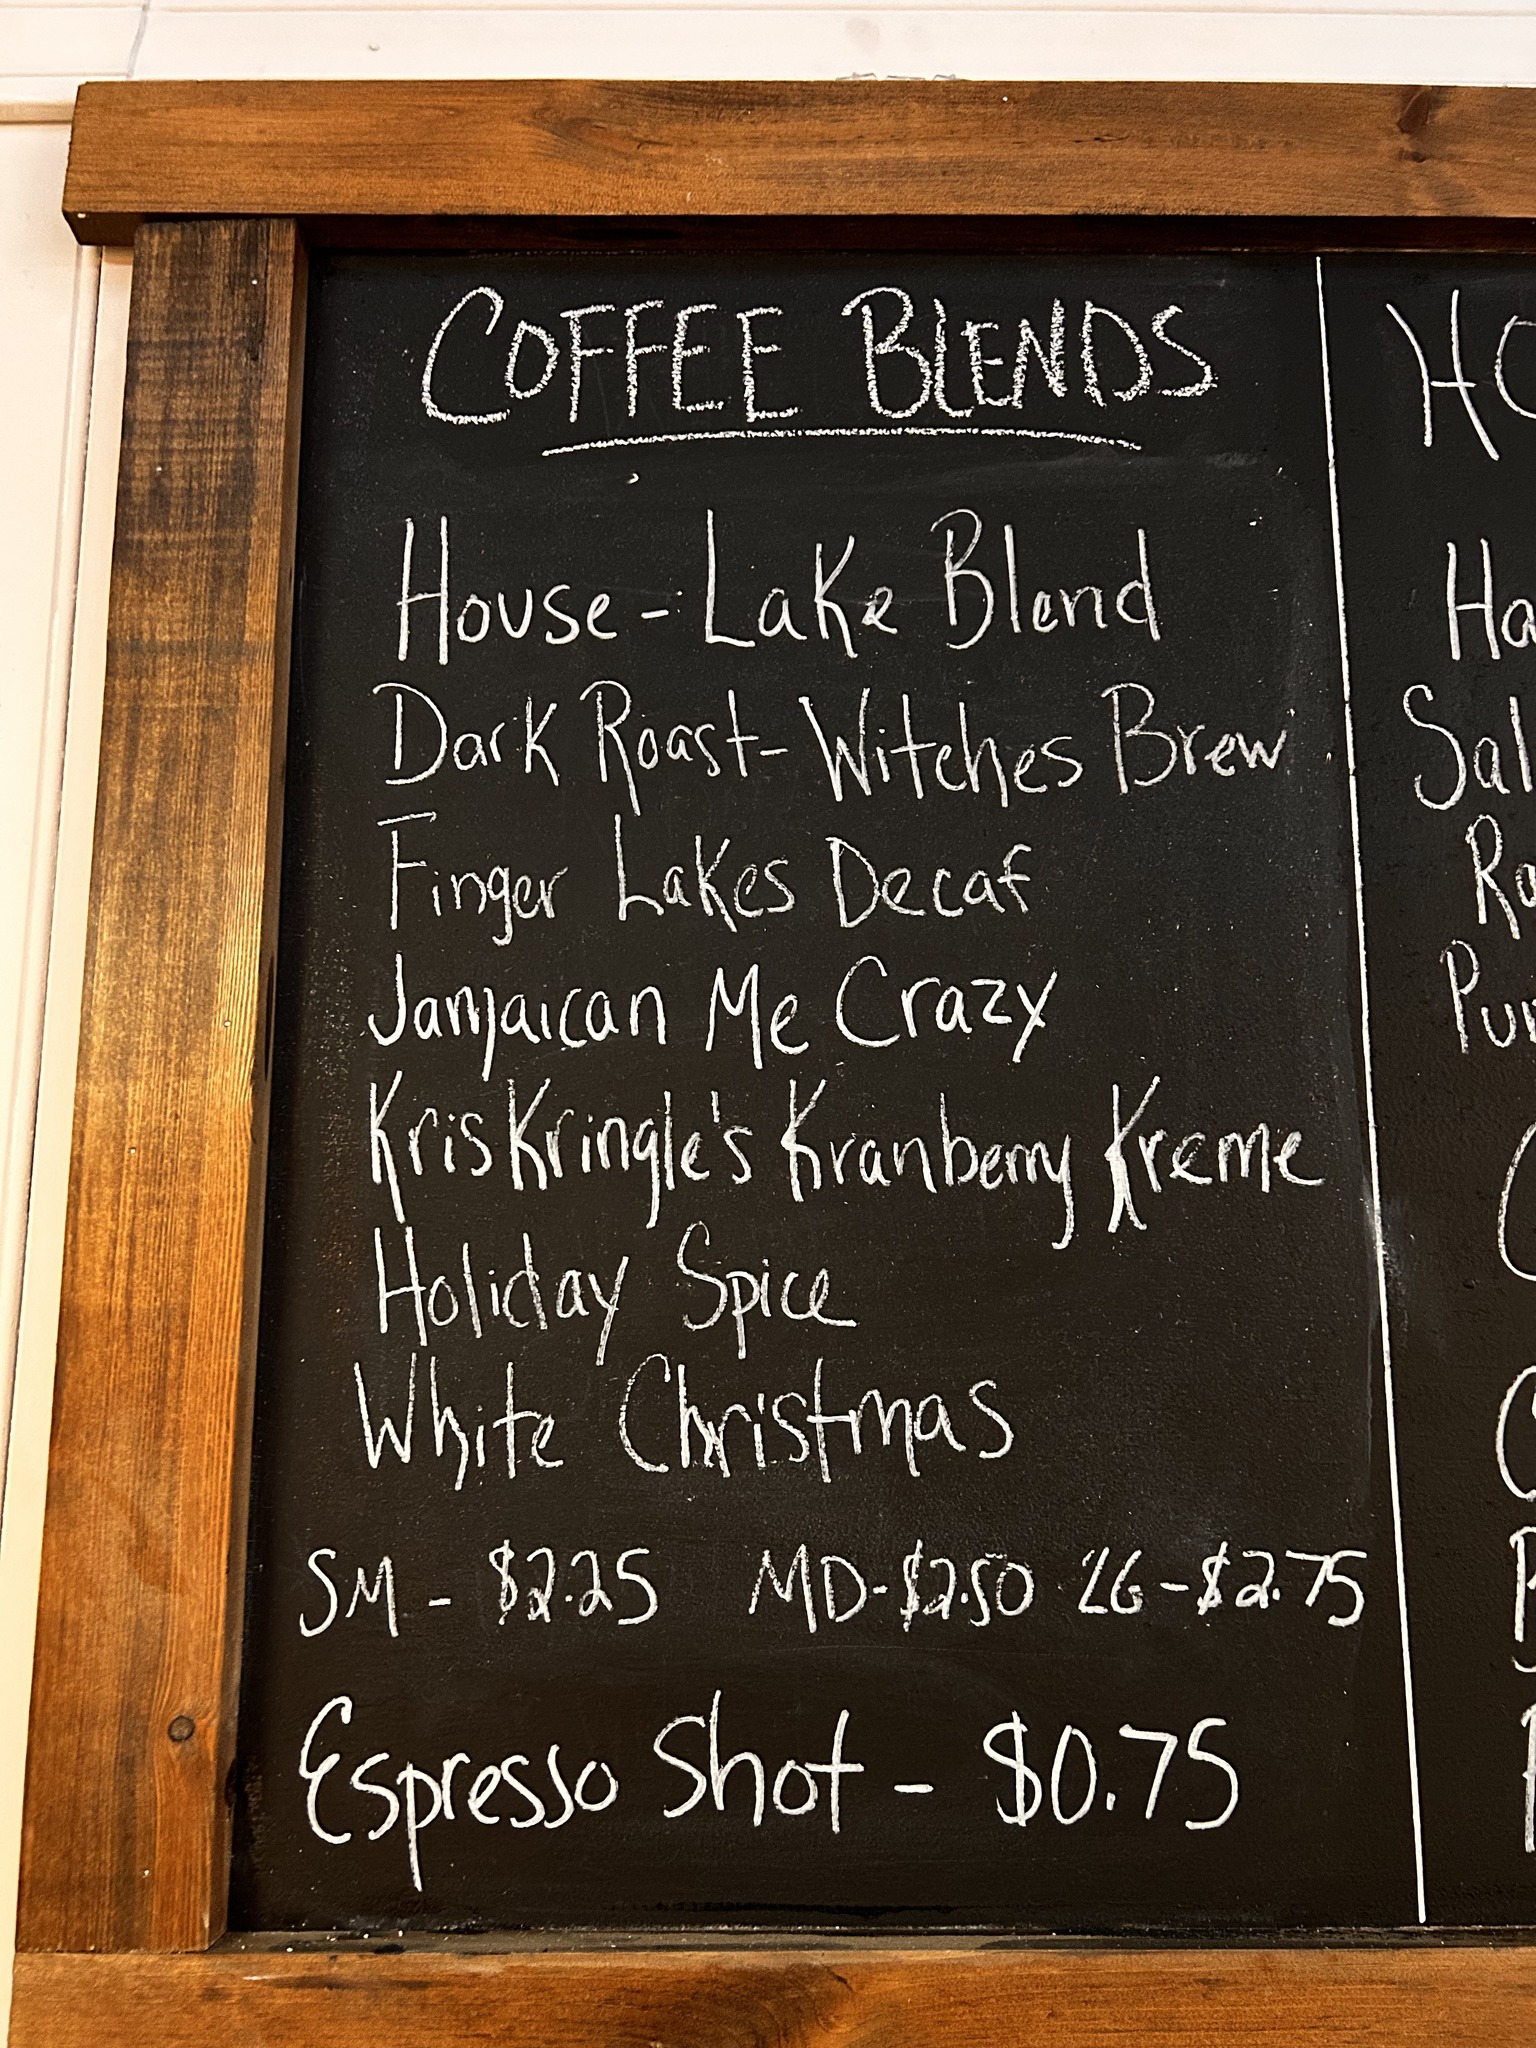 COFFEE BLENDS
House - Lake Blend
Dark Roast - Witches Brew
Finger Lakes Decaf
Jamaican Me Crazy
Kris Kringle's Kranberry Kreme
Holiday Spice
White Christmas
SM - $2.25 MD - $2.50 LG - $2.75
Espresso Shot - $0.75